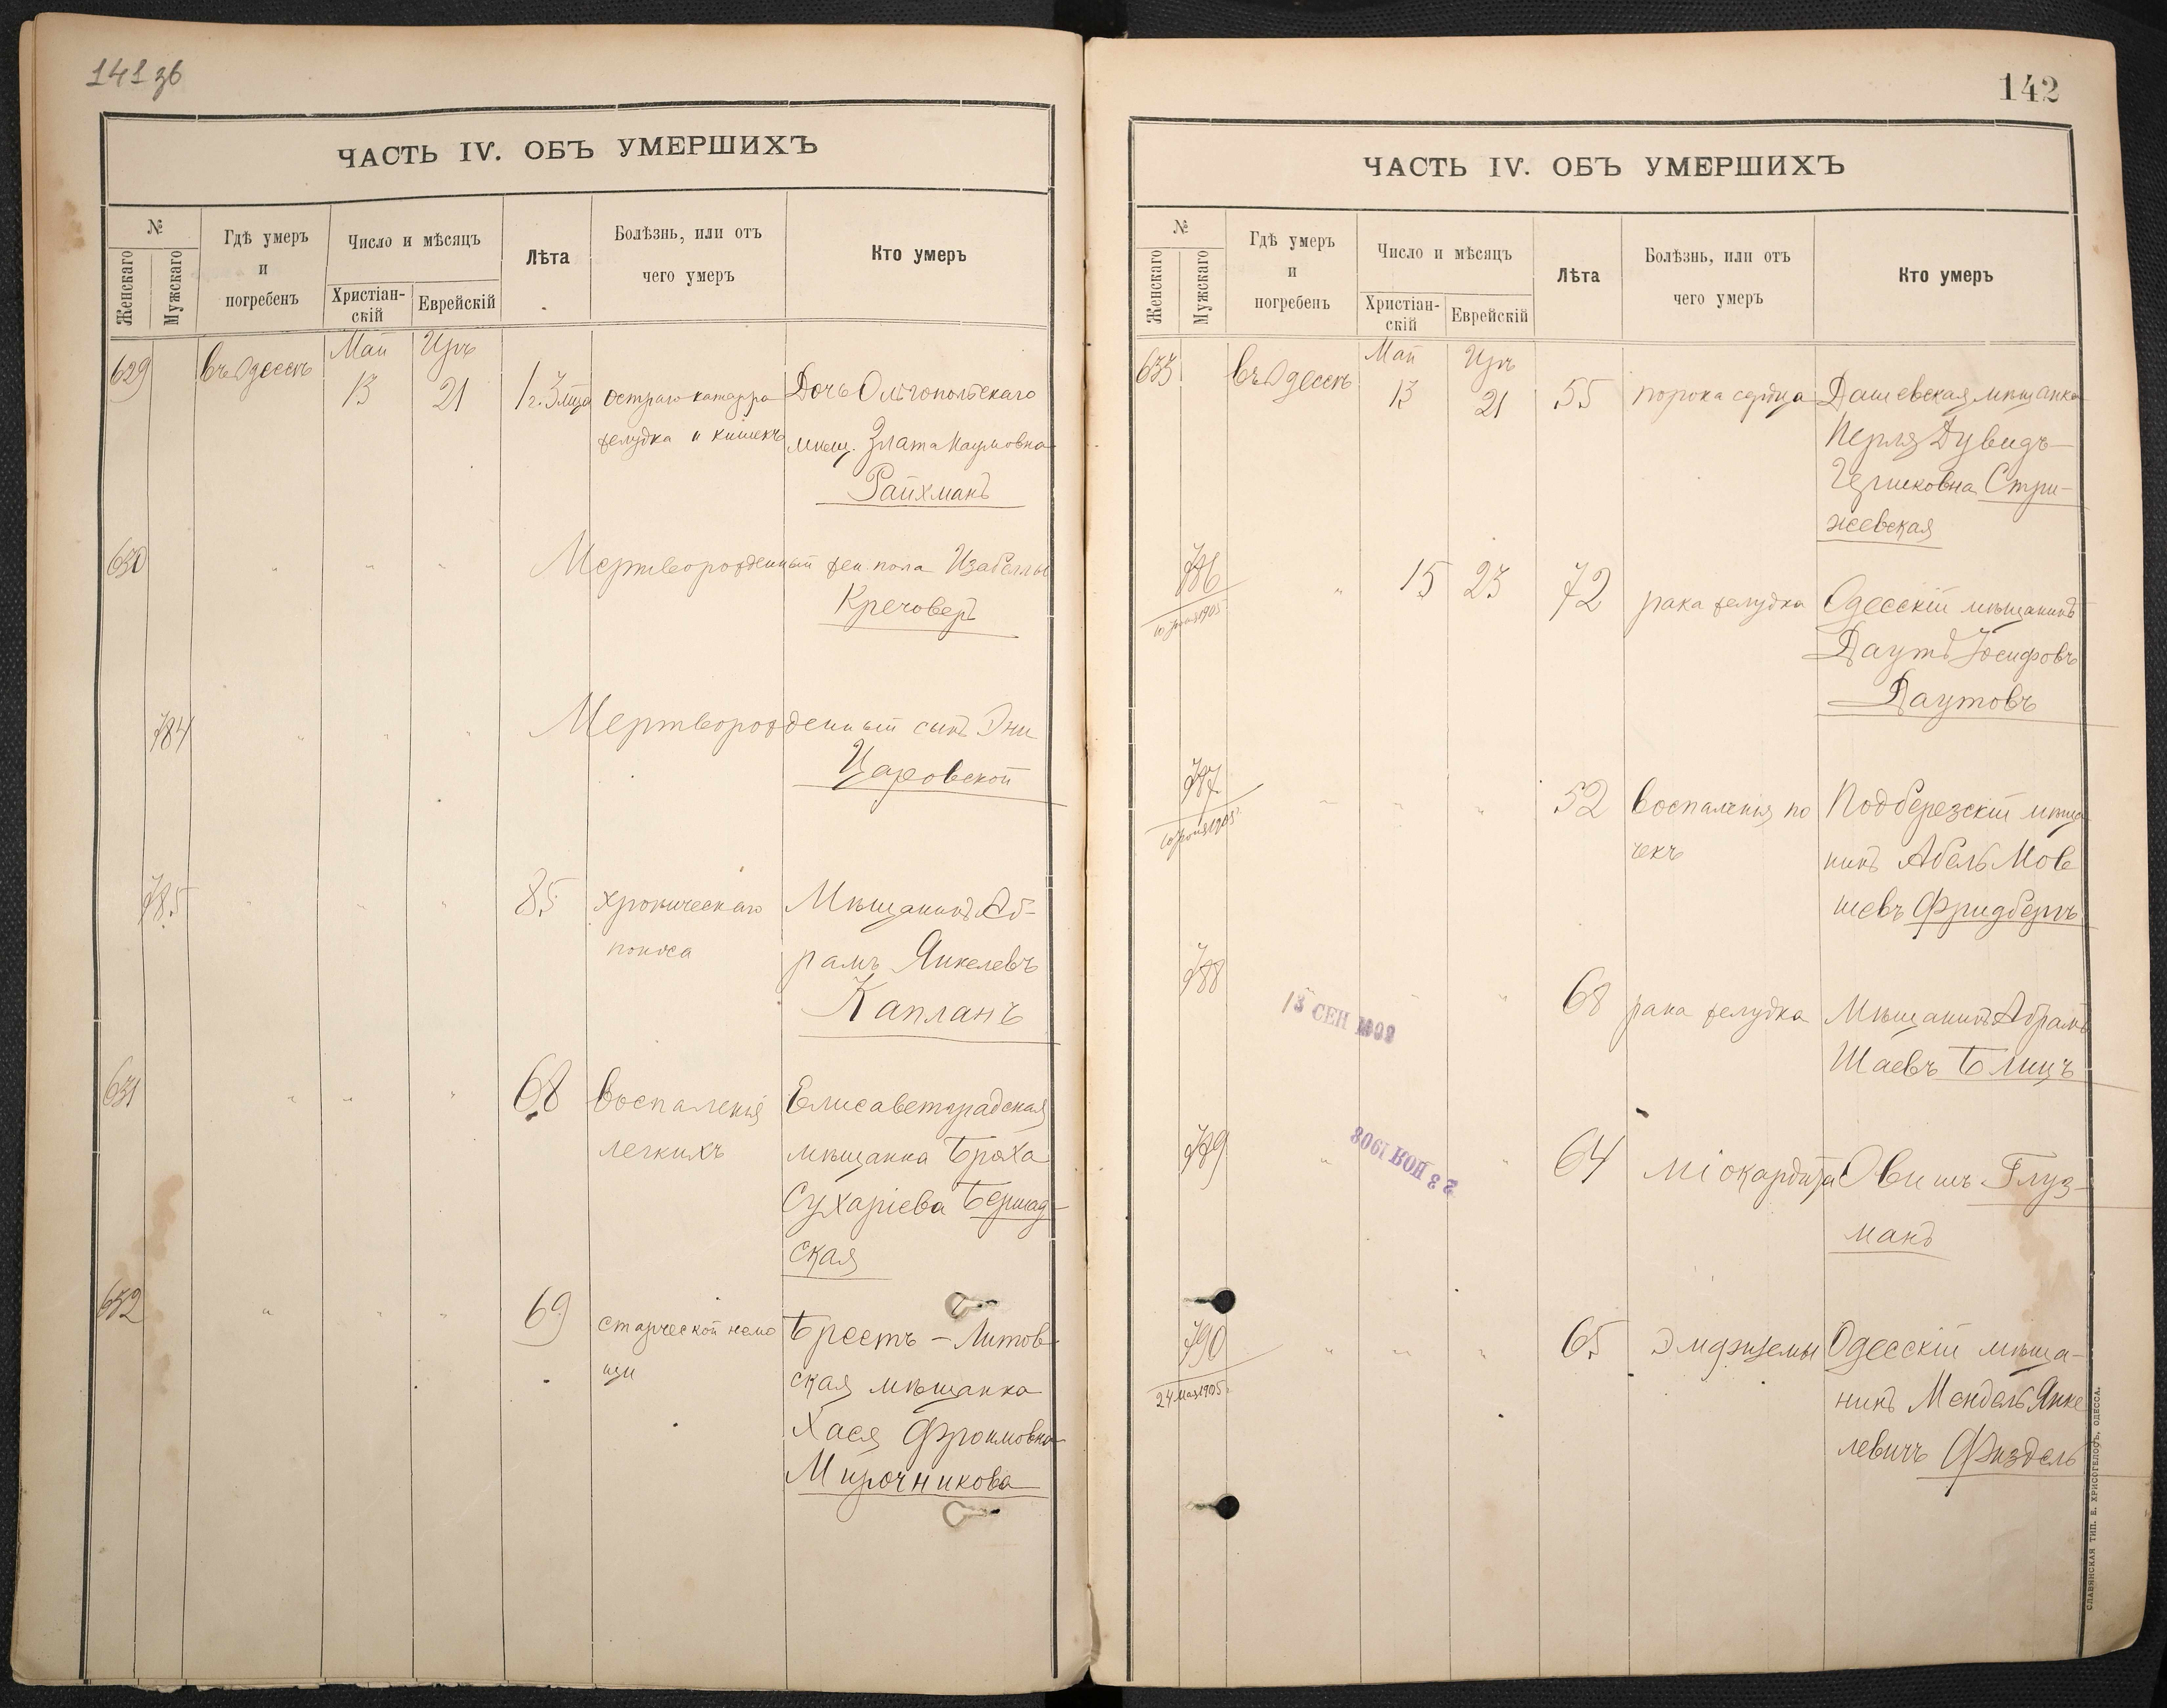 141 зв
ЧАСТЬ IV. ОБЪ УМЕРШИХЪ
№
Женскаго
Мужскаго
Гдѣ умеръ
и
погребенъ
Число и мѣсяцъ
Христіан-
скій
Еврейскій
Лѣта
Болѣзнь, или отъ
чего умеръ
Кто умеръ
Май Иръ
629 въ Одессѣ 13 21 1 г. 3 мца остраго катарра Дочь Ольгопольскаго
желудка и кишекъ мѣщ. Злата Наумовна
Райхманъ
630 " " " Мертворожденный жен. пола Изабеллы
Кречоверъ
784 " " " Мертворожденный сынъ Эни
Царовской
785 " " " 85 хроническаго Мѣщанинъ Аб-
поноса рамъ Янкелевъ
Капланъ
631 " " " 68 воспаленія Елисаветградская
легкихъ мѣщанка Броха
Сухаріева Бершад-
ская
632 " " " 69 старческой немо Брестъ-Литов-
щи ская мѣщанка
Хася Фроимовна
Мирочникова
142
ЧАСТЬ IV. ОБЪ УМЕРШИХЪ
№
Женскаго
Мужскаго
Гдѣ умеръ
и
погребенъ
Число и мѣсяцъ
Христіан-
скій
Еврейскій
Лѣта
Болѣзнь, или отъ
чего умеръ
Кто умеръ
Май Иръ
633 въ Одессѣ 13 21 55 порока сердца Дашевская мѣщанка
Перля Дувидъ-
Гершковна Стри-
жевская
786 " 15 23 72 рака желудка Одесскій мѣщанинъ
10 1905
Даутъ Іосифовъ
Даутовъ
787 " " " 52 воспаленія по Подберезскій мѣща
10 1905 г.
чекъ нинъ Абель Мов
шевъ Фридбергъ
788 " " 68 рака желудка Мѣщанинъ Абрамъ
13 СЕН 1908
Шаевъ Блицъ
789 " " 64 міокардита Овшъ Глуз-
23 НОЯ 1908
манъ
790 " " " 65 Эмфиземы Одесскій мѣща-
24 мая 1905 г.
нинъ Мендель Янке
левичъ Физдель
СЛАВЯНСКАЯ ТИП. Е. ХРИСОГЕЛОСЪ, ОДЕССА.